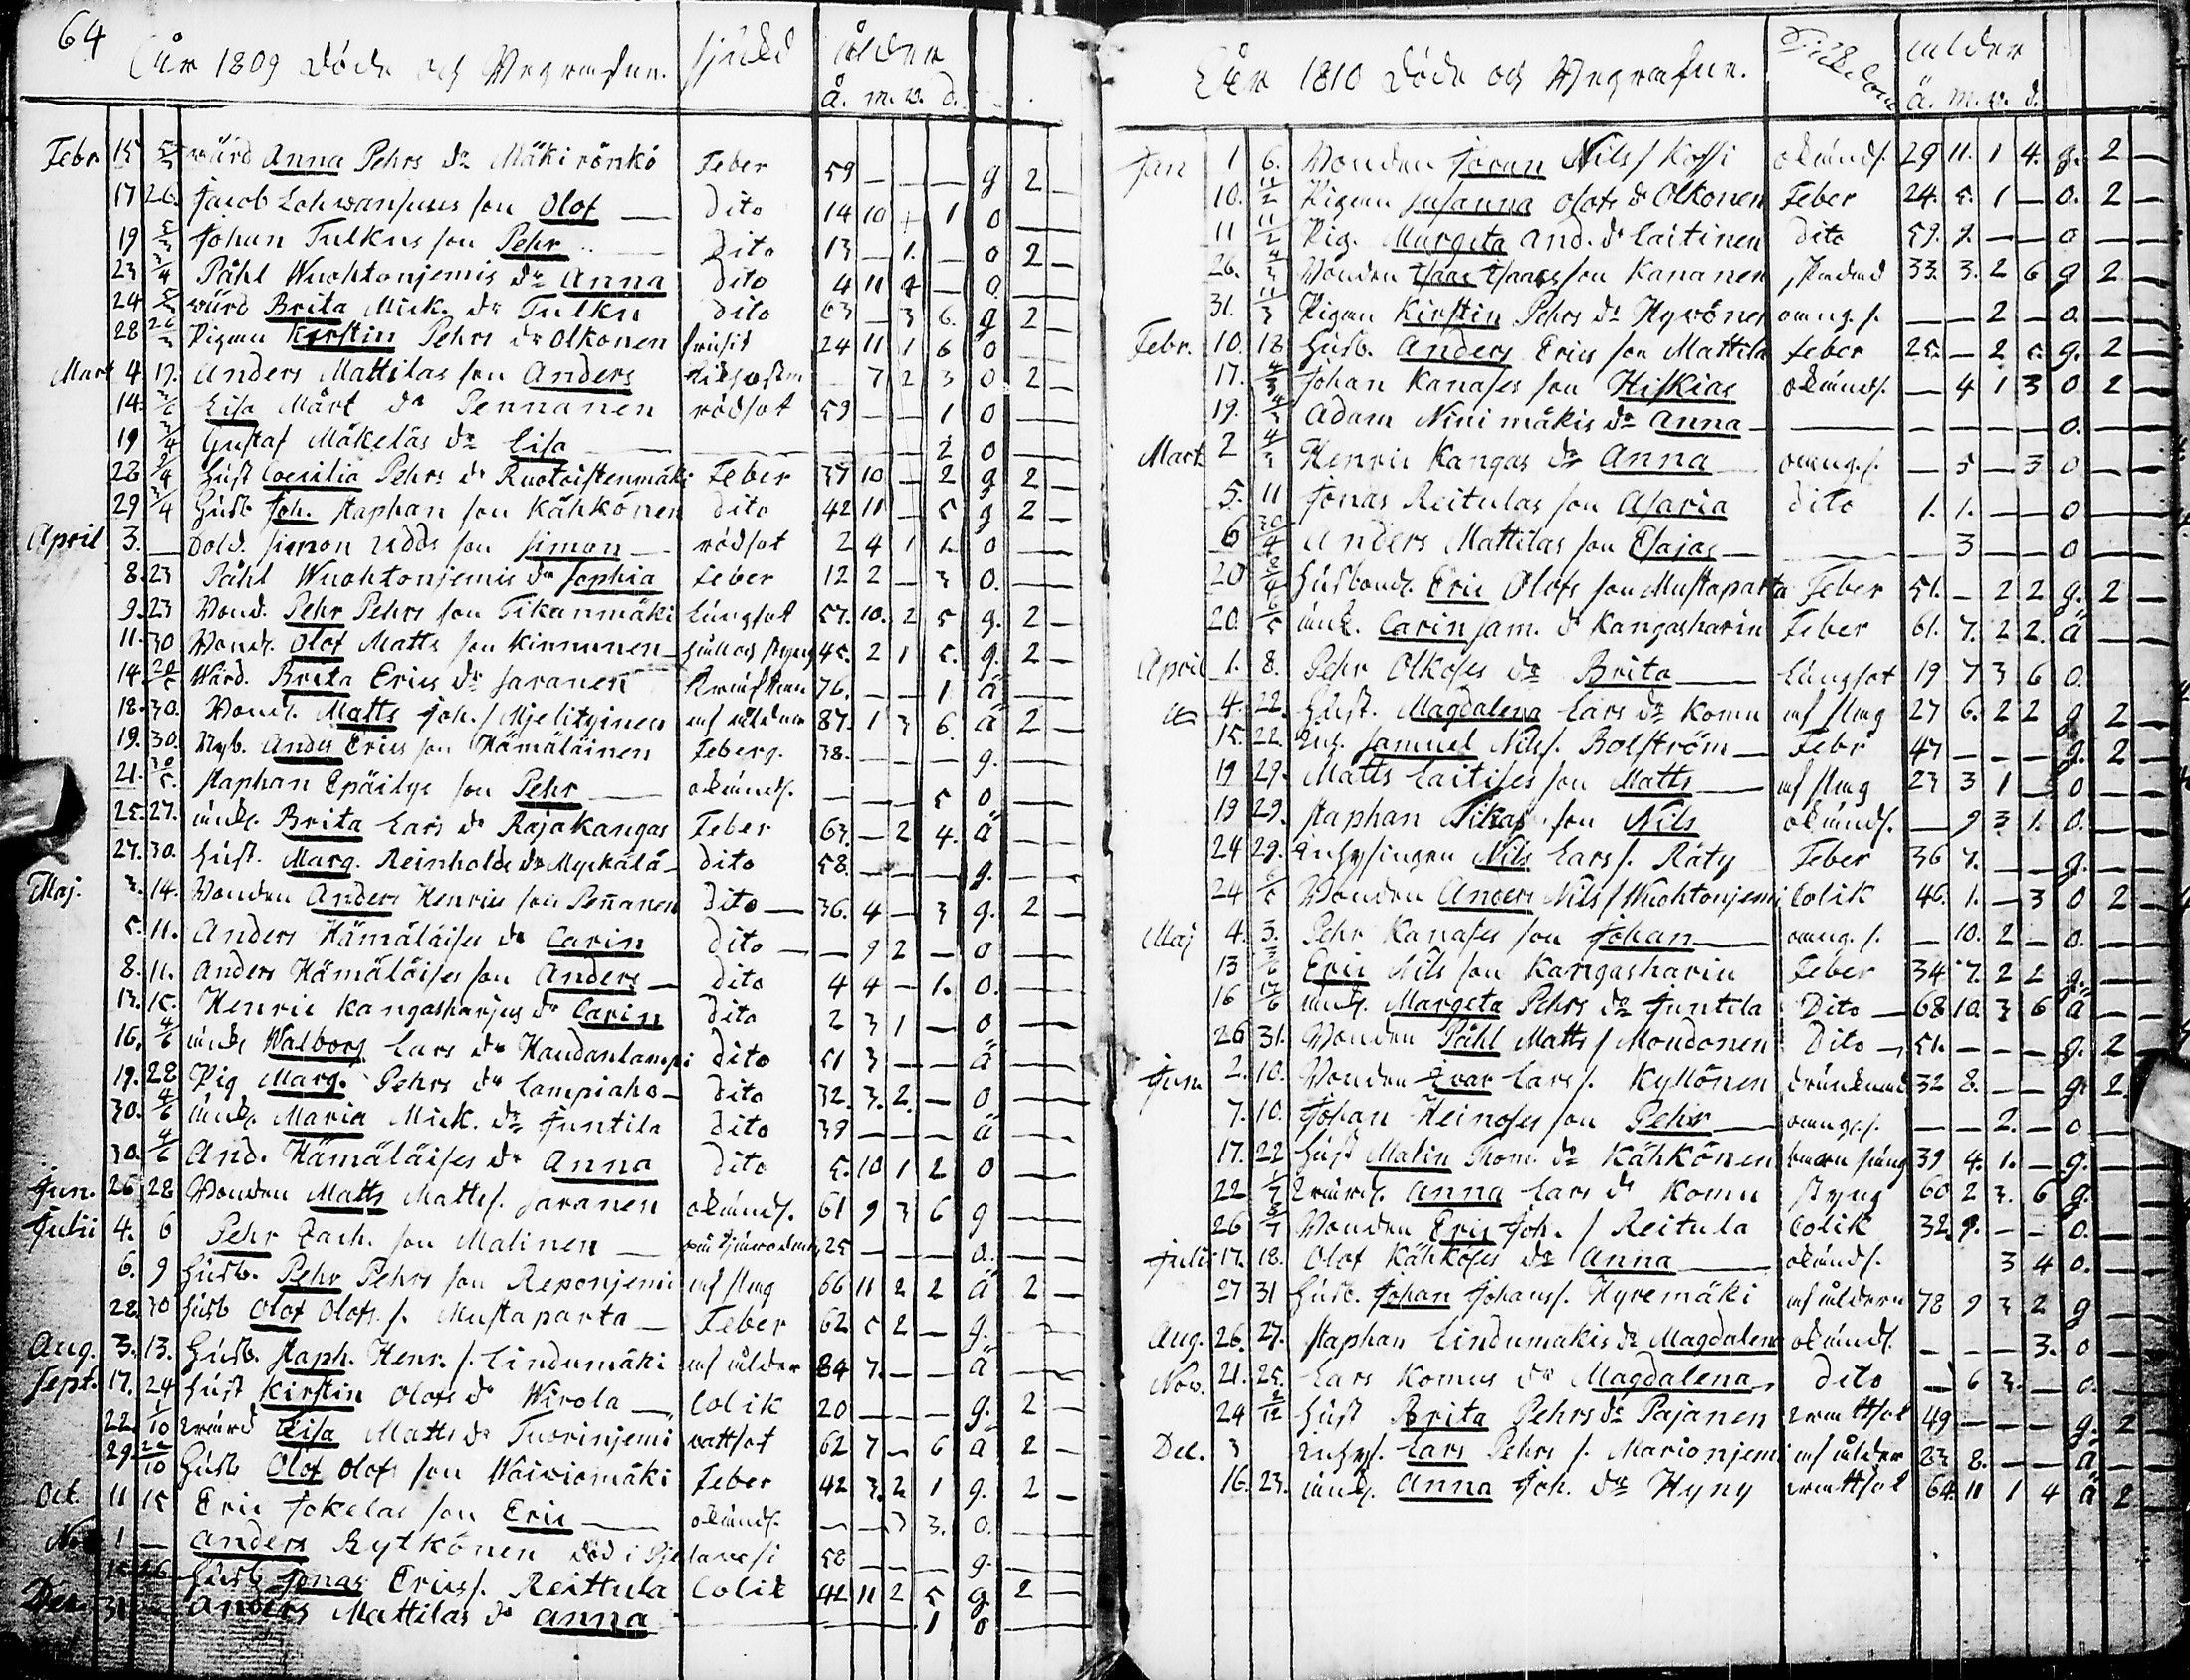 64
År 1809 Döde och Begrafne. sjukd ålder
å. m. v. d.
Febr 15 5/3 wärd Anna Pehrs dr Mäkirönkö Feber 59 — — — g 2 —
17 26. Jacob Lohwansuus son Olof — Dito 14 10 + 1 0 —
19 5/3 Johan Tulkus son Pehr Dito 13 — 1. — 0 2 —
23 3/4 Påhl Wuohtonjemis dr Anna Dito 4 11 — 0 —
24 wärd Brita Mick. dr Tulku Dito 63 — 3 6. g 2 —
28 26/3 Pigan Kirstin Pehrs dr Olkonen 24 11 1 6 0 —
Mart 4 19. Anders Mattilas son Anders 7 2 3 0 2 —
14. Lisa Mårt dr Pennanen rödsot 59 — — 1 0 —
19 3/4 Gustaf Mäkeläs dr Lisa — 2 0 —
28 2/4 Hust Coecilia Pehrs dr Ruotoistenmäki Feber 37 10 — 2 g 2 —
29 3/4 Husb Joh. Staphan son Kähkönen Dito 42 11 — 5 g 2 —
April 3. — Sold. Simon Udds son Simon — rödsot 2 4 1 1. 0 —
8. 23 Påhl Wuohtonjemis dr Sophia Feber 12 2 — 3 0. —
9. 23 Bond. Pehr Pehrs son Tikanmäki Lungsot 57. 10. 2 5 g. 2 —
11. 30 Bond. Olof Matts son Kinnunen 45. 2 1 5. g. 2 —
14. Wärd. Brita Erics dr Saranen 76. — — 1 ä —
18. 30. Bond. Matts Joh. s. Mjelityinen af ålder 87. 1 3 6. ä 2 —
19. 30. Nyb. Anders Erics son Hämäläinen Feber 38. — — — g. —
21. 30/5 Staphan Epäilys son Pehr — okänds. — — — 5 0 —
25. 27. änk. Brita Lars dr Rajakangas Feber 63. — 2 4. ä —
27. 30. Hust. Marg. Reinholds dr Myckälä — Dito 58. — — — g. —
Maj. 3. 14. Bonden Anders Henrics son Peñanen Dito — 36. 4 — 3 g. 2 —
5. 11. Anders Hämäläises dr Carin Dito — — 9 2 — 0 —
8. 11. Anders Hämäläises son Anders — Dito 4 4 — 1. 0. —
13. 15. Henric Kangasharjus dr Carin Dito 2 3 1 — 0 —
16. 4/6 änk. Walborg Lars dr Haudanlampi Dito 51 3 — — ä —
19. 28 Pig Marg. Pehrs dr Lampiaho — Dito 32. 3. 2. — 0 —
30. 4/6 änk. Maria Mick. dr Juntila Dito 39 — — — ä —
30. 4/6 And. Hämäläises dr Anna Dito 5. 10 1 2 0 —
Jun. 26 28 Bonden Matts Matts s. Saranen okänds. 61 9 3 6 g —
Julii 4. 6 Pehr Zach. son Malinen — 25 — — — 0. —
6. 9 Husb. Pehr Pehrs son Reponjemi af slag 66 11 2 2 ä 2 —
22. 30 Husb Olof Olofs s. Mustaparta — Feber 62 5 2 — g. —
Aug. 3. 13. Husb. Staph. Henr. s. Lindumäki af ålder 84 7. — — ä —
Sept. 17. 24 Hust Kirstin Olofs dr Wirola — Colik 20 — — — g. 2 —
22. 1/10 wärd Lisa Matts dr Tuorinjemi wattsot 62 7 — 6 ä 2 —
29 Husb Olof Olofs son Waiwiomäki Feber 42 3. 2 1 g. 2 —
Oct. 11 15 Eric Jokelas son Eric — okänds. — — 3 3. 0. —
Nov 1 — Anders Rytkönen död i Pjelavesi 58 — — — g. —
15 26 Husb Jonas Erics s. Reittula Colik 42 11 2 5 g. 2 —
Dec 31 — Anders Mattilas dr Anna — 1 0 —
År 1810 Döde och Begrafne. Sjukdom ålder
å. m. v. d.
Jan 1 6. Bonden Jöran Nils s. Kossi okänds. 29 11. 1 4. g. 2 —
10. 11/2 Pigan Susanna Olofs dr Olkonen Feber 24. 5. 1 — 0. 2 —
11 11/2 Pig. Margeta And. dr Laitinen Dito 59. 9. — — 0 —
26. 4/3 Bonden Isaac Isaacs son Kananen 33. 3. 2 6 g 2
31. 11/3 Pigan Kirstin Pehrs dr Hyvönen — — 2 — 0. —
Febr. 10. 18 Husb. Anders Erics son Mattila Feber 25. — 2 5. g. 2 —
17. 4/3 Johan Kanases son Hiskias okänds. — 4 1 3 0 2 —
19. 4/3 Adam Niinimäkis dr Anna — — — — — 0. —
Mart. 2 4/3 Henric Kangas dr Anna — 5 — 3 0 —
5. 11 Jonas Reitulas son Asaria Dito 1. 1. — — 0 —
6 30/4 Anders Mattilas son Esajas — — 3 — — 0 —
20 Husbond. Eric Olofs son Mustaparta Feber 51. — 2 2 g. 2 —
20. 6/5 änk. Carin Sam. dr Kangasharju Feber 61. 7. 2 2. ä —
April 1. 8. Pehr Olkoses dr Brita — Lungsot 19 7 3 6 0. —
4. 22. Hust. Magdalena Lars dr Komu af slag 27 6. 2 2 g 2 —
15. 22. Inh. Samuel Nils s. Bolström — Febr 47 — — — g. 2 —
19 29. Matts Laitises son Matts — af slag 23 3 1 — 0 —
19 29. Staphan Tikas son Nils okänds. — 9 3 1. 0. —
24 29. Inhysingen Nils Lars s. Räty Feber 36 7. — — g. —
24 6/5 Bonden Anders Nils s. Wuohtonjemi Colik 46. 1. — 3 0 2 —
Maj 4. 5. Pehr Kanases son Johan — — 10. 2 — 0. —
13 3/6 Eric Nils son Kangasharju Feber 34 7. 2 2 g. —
16 17/6 änk. Margeta Pehrs dr Juntila Dito — 68 10. 3 6 ä —
26 31. Bonden Påhl Matts s. Moudonen Dito — 51. — — — g. 2
Jun. 2. 10. Bonden Ivar Lars s. Kyllönen drunknad 32 8. — — g. 2.
7. 10. Johan Heinoses son Pehr — — — 2. — 0 —
17. 22 Hust Malin Thom. dr Kähkönen barnsäng 39 4. 1. — g. —
22 1/7 wärd. Anna Lars dr Komu styng 60 2 3. 6 g. —
26 8/7 Bonden Eric Joh. s. Reitula Colik 32. 9. — — 0. —
Julii 17. 18. Olof Kähköses dr Anna — okänds. 3 4 0. —
27 31 Husb. Johan Johans s. Hyremäki af åldern 78 9 3 2 g —
Aug. 26. 27. Staphan Lindumäkis dr Magdalena okänds. — — — 3. 0 —
Nov. 21. 25. Lars Komus dr Magdalena Dito — 6 3. — 0. —
24 2/12 Hust Brita Pehrs dr Pajanen wattsot 49 — — — g. 2
Dec. 3 Inhys. Lars Pehrs s. Marionjemi af ålder 83 8. — — ä. —
16. 23. änk. Anna Joh. dr Hyny wattsot 64. 11 1 4 ä 2